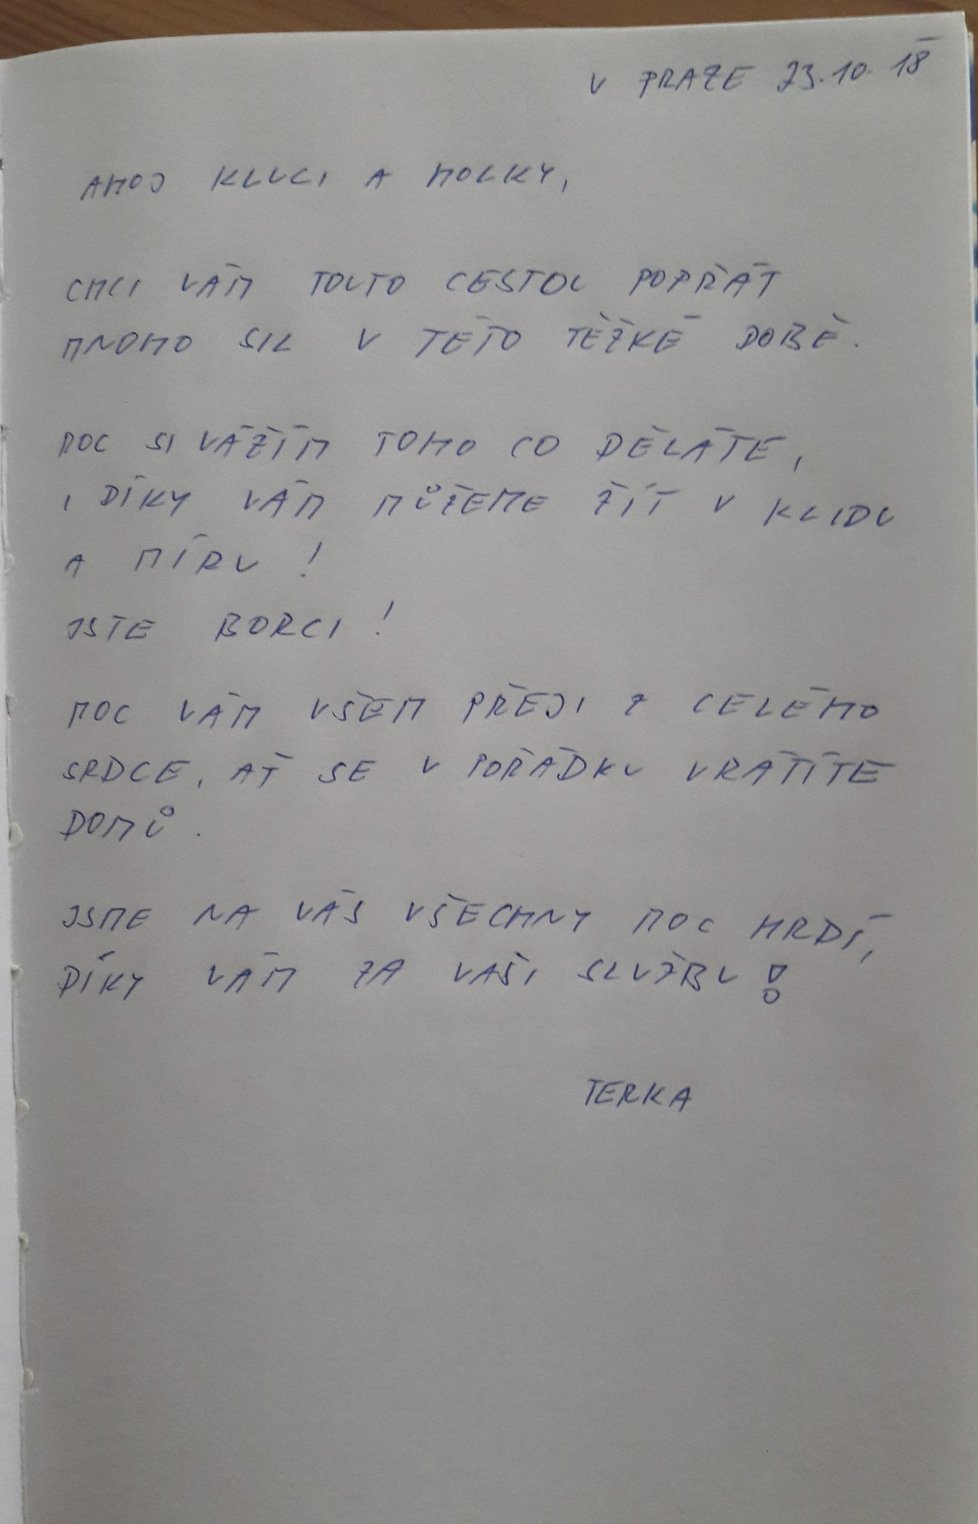 V PRAZE 23.10.18
AHOJ KLUCI A HOLKY,
CHCI VÁM TOUTO CESTOU POPŘÁT
MNOHO SIL V TÉTO TĚŽKÉ DOBĚ.
MOC SI VÁŽÍM TOHO CO DĚLÁTE,
I DÍKY VÁM MŮŽEME ŽÍT V KLIDU
A MÍRU!
JSTE BORCI!
MOC VÁM VŠEM PŘEJI Z CELÉHO
SRDCE, AŤ SE V POŘÁDKU VRÁTÍTE
DOMŮ.
JSME NA VÁS VŠECHNY MOC HRDÍ,
DÍKY VÁM ZA VAŠI SLUŽBU!
TERKA